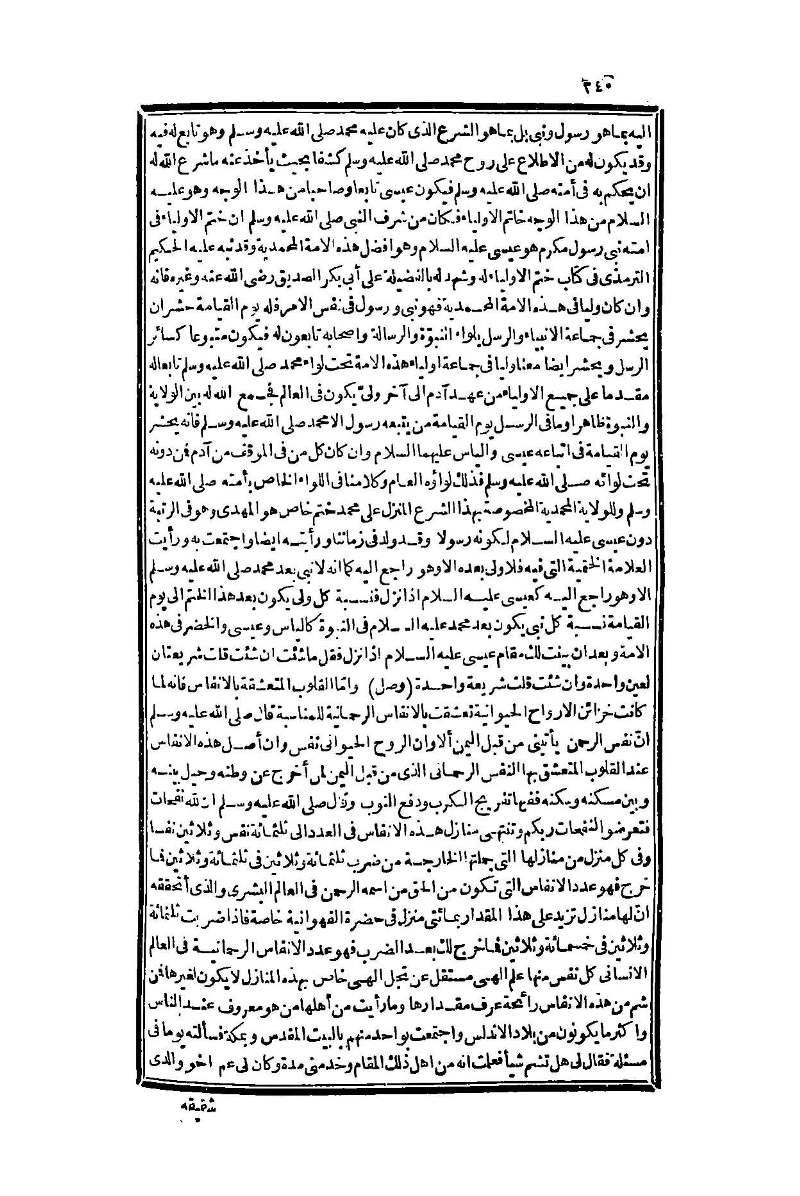 ٢٤٠
اليه بما هو رسول ونبى بل بما هو الشرع الذى كان عليه محمد صلى الله عليه وسلم وهو تابع له فيه
وقد يكون له من الاطلاع على روح محمد صلى الله عليه وسلم كشفا بحيث يأخذ عنه ما شرع الله له
ان يحكم به فى أمته صلى الله عليه وسلم فيكون عيسى تابعا وصاحبا من هذا الوجه وهو عليه
السلام من هذا الوجه خاتم الاولياء فكان من شرف النبى صلى الله عليه وسلم ان ختم الاولياء فى
امته نبى رسول مكرم هو عيسى عليه السلام وهو افضل هذه الامة المحمدية وقد نبه عليه الحكيم
الترمذى فى كتاب ختم الاولياء له وشهد له بالفضيلة على أبى بكر الصديق رضى الله عنه وغيره فانه
وان كان وليا فى هذه الامة المحمدية فهو نبى ورسول فى نفس الامر فله يوم القيامة حشران
يحشر فى جماعة الانبياء والرسل بلواء النبوة والرسالة واصحابه تابعون له فيكون متبوعا كسائر
الرسل ويحشر ايضا معنا وليا فى جماعة اولياء هذه الامة تحت لواء محمد صلى الله عليه وسلم تابعا له
مقدما على جميع الاولياء من عهد آدم الى آخر ولىّ يكون فى العالم فجمع الله له بين الولاية
والنبوة ظاهرا وما فى الرسل يوم القيامة من يتبعه رسول الا محمد صلى الله عليه وسلم فانه يحشر
يوم القيامة فى اتباعه عيسى والياس عليهما السلام وان كان كل من فى الموقف من آدم فمن دونه
تحت لوائه صلى الله عليه وسلم فذلك لواؤه العام وكلامنا فى اللواء الخاص بأمته صلى الله عليه
وسلم وللولاية المحمدية المخصوصة بهذا الشرع المنزل على محمد ختم خاص هو المهدى وهو فى الرتبة
دون عيسى عليه السلام لكونه رسولا وقد ولد فى زماننا ورأيته ايضا واجتمعت به ورأيت
العلامة الختمية التى فيه فلا ولى بعده الا وهو راجع اليه كما انه لا نبى بعد محمد صلى الله عليه وسلم
الا وهو راجع اليه كعيسى عليه السلام اذا نزل فنسبة كل ولى يكون بعد هذا الختم الى يوم
القيامة نسبة كل نبى يكون بعد محمد عليه السلام فى النبوة كالياس وعيسى والخضر فى هذه
الامة وبعد ان بينت لك مقام عيسى عليه السلام اذا نزل فقل ما شئت ان شئت قلت شريعتان
لعين واحدة وان شئت قلت شريعة واحدة (وصل) وأمّا القلوب المتعشقة بالانفاس فانه لما
كانت خزائن الارواح الحيوانية تعشقت بالانفاس الرحمانية للمناسبة قال صلى الله عليه وسلم
انّ نفس الرحمن يأتينى من قبل اليمن ألا وان الروح الحيوانى نفس وان أصل هذه الانفاس
عند القلوب المتعشق بها النفس الرحمانى الذى من قبل اليمن لمن أخرج عن وطنه وحيل بينه
وبين مسكنه وسكنه ففيها تفريج الكرب ودفع النوب وقال صلى الله عليه وسلم ان لله نفحات
فتعرضوا لنفحات ربكم وتنتهى منازل هذه الانفاس فى العدد الى ثلثمائة نفس وثلاثين نفسا
وفى كل منزل من منازلها التى جملتها الخارجة من ضرب ثلثمائة وثلاثين فى ثلثمائة وثلاثين فما
خرج فهو عدد الانفاس التى تكون من الحق من اسمه الرحمن فى العالم البشرى والذى أتحققه
انّ لها منازل تزيد على هذا المقدار بمائتى منزل فى حضرة الفهوانية خاصة فاذا ضربت ثلثمائة
وثلاثين فى خمسمائة وثلاثين فما خرج لك بعد الضرب فهو عدد الانفاس الرحمانية فى العالم
الانسانى كل نفس منها علم الهى مستقل عن تجل الهى خاص بهذه المنازل لا يكون لغيرها فمن
شم من هذه الانفاس رائحة عرف مقدارها وما رأيت من أهلها من هو معروف عند الناس
واكثر ما يكونون من بلاد الاندلس واجتمعت بواحد منهم بالبيت المقدس وبمكة فسألته يوما فى
مسئلة فقال لى هل تشم شيأ فعلمت انه من اهل ذلك المقام وخدمنى مدة وكان لى عم اخو والدى
شقيقه